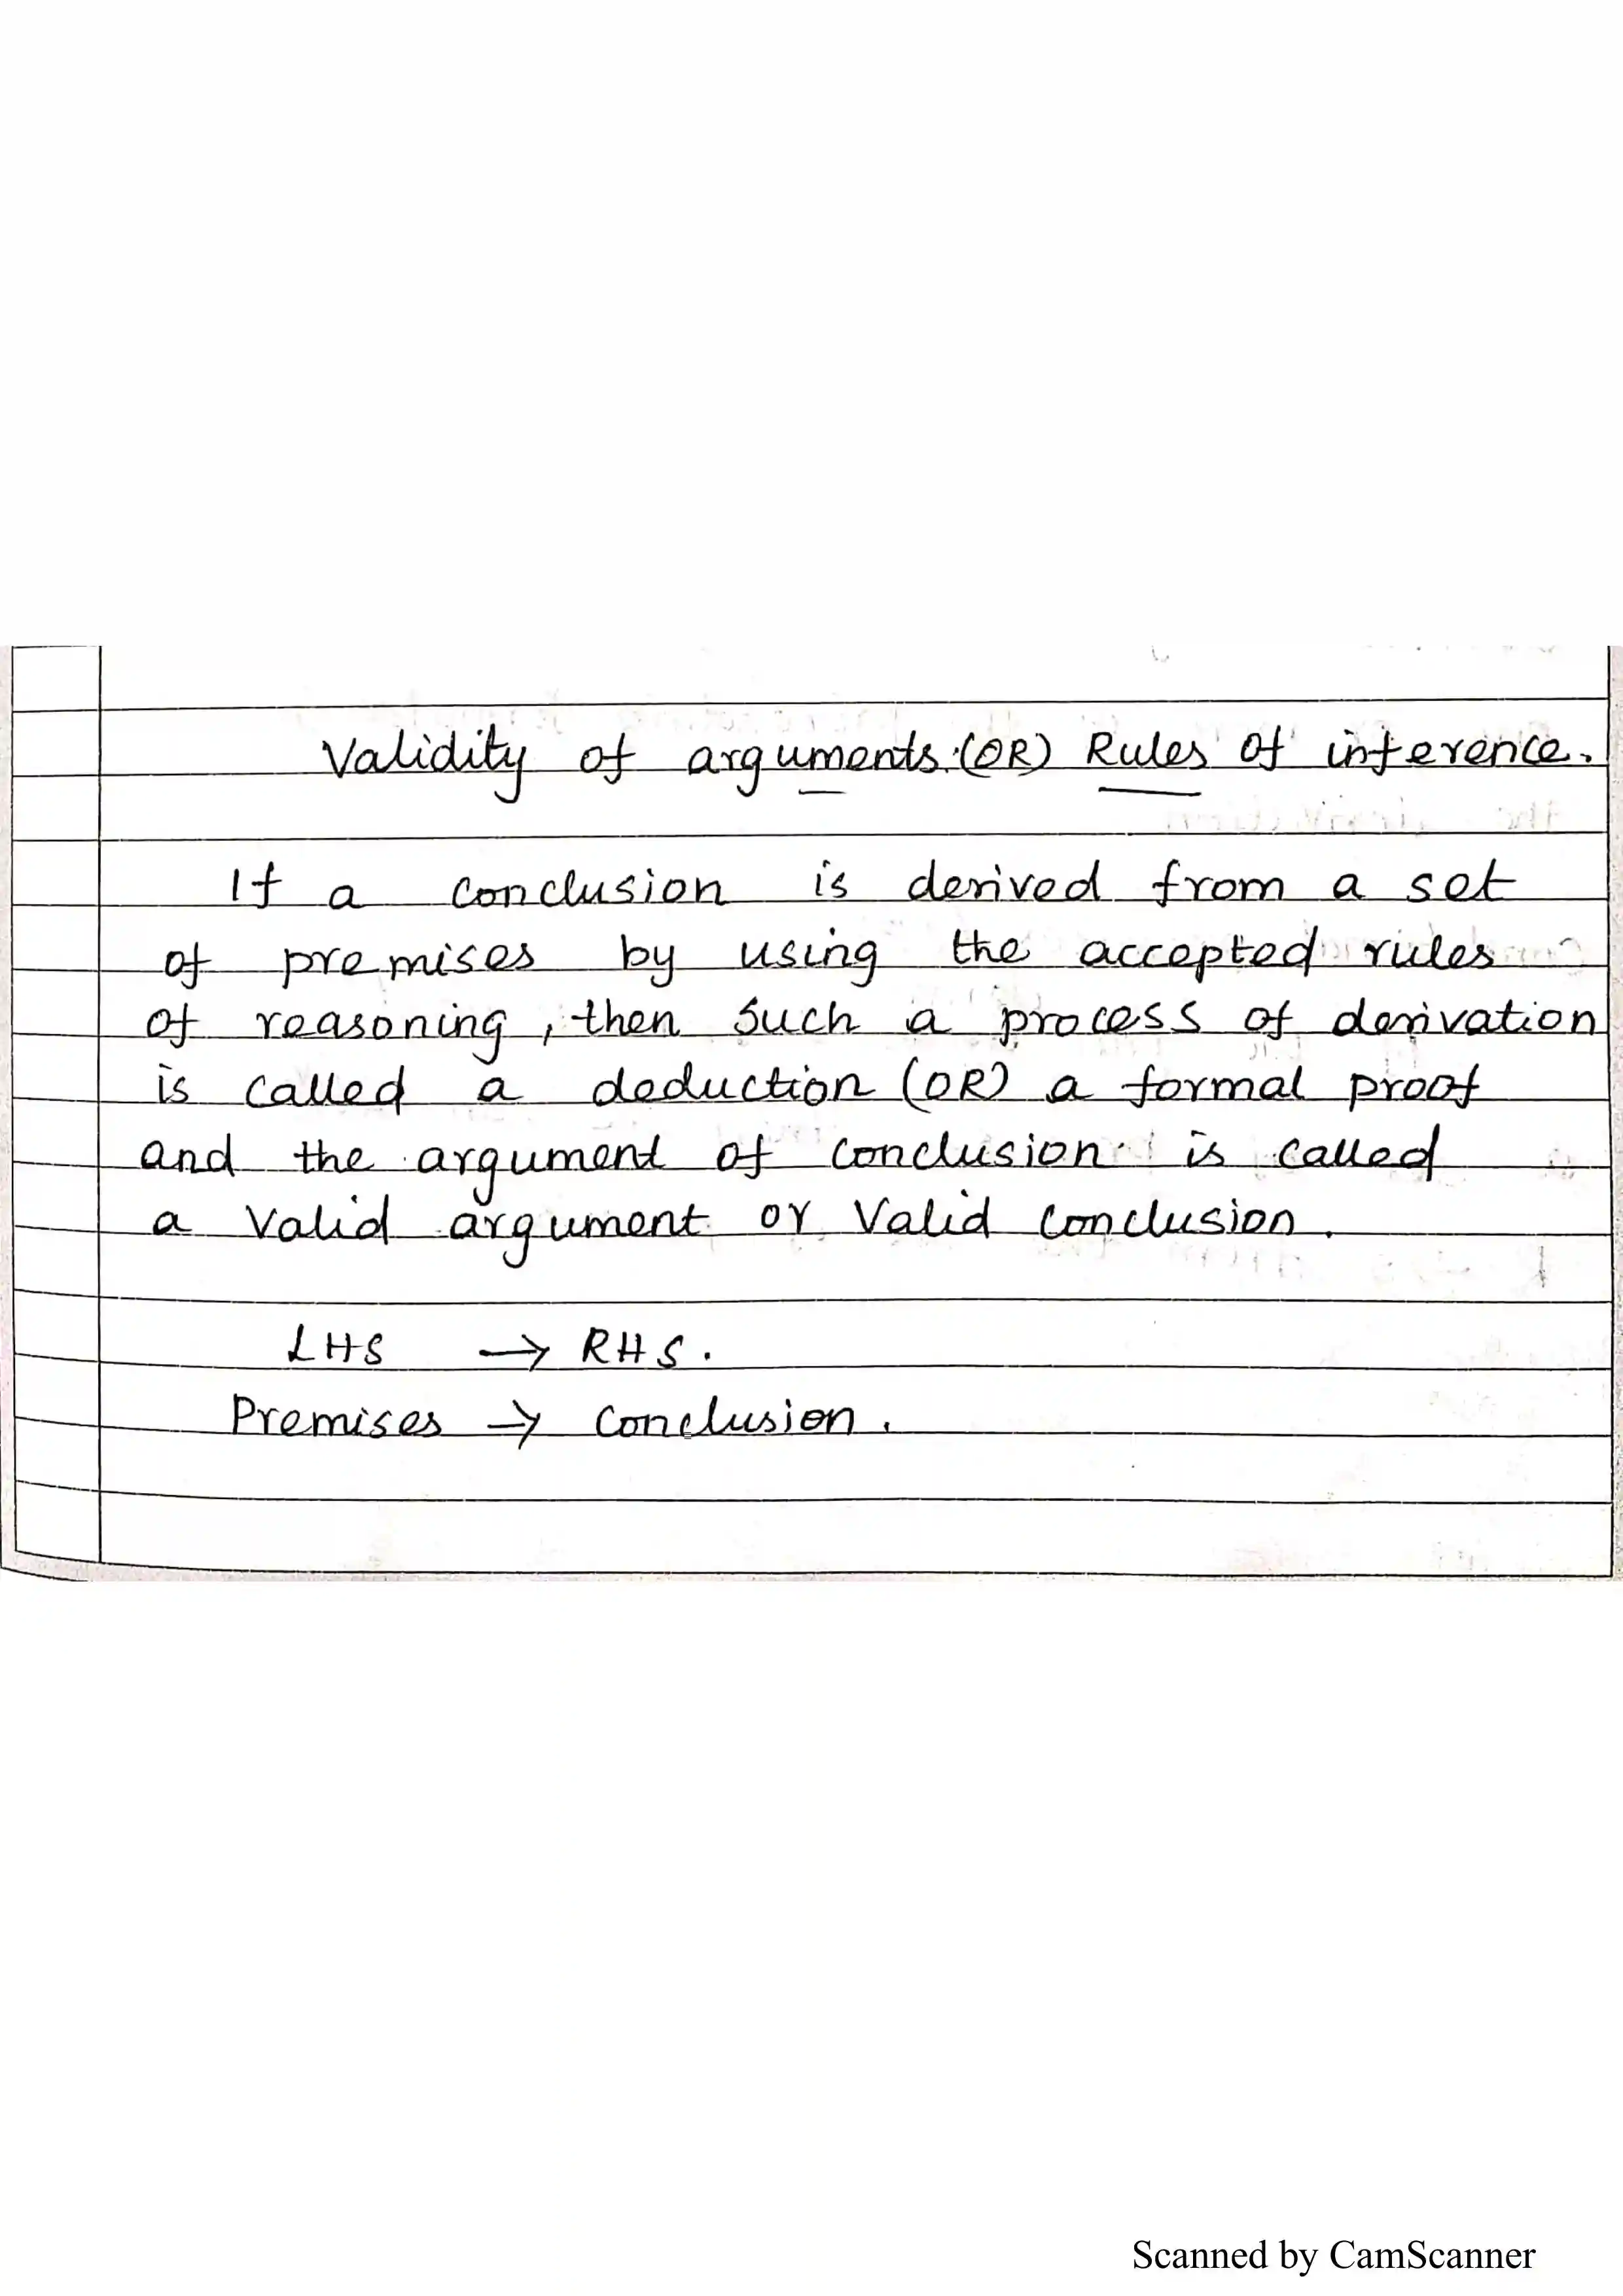 Validity of arguments (OR) Rules of inference.
If a conclusion is derived from a set
of premises by using the accepted rules
of reasoning, then such a process of derivation
is called a deduction (OR) a formal proof
and the argument of conclusion is called
a valid argument or valid conclusion.
LHS → RHS.
Premises → Conclusion.
Scanned by CamScanner